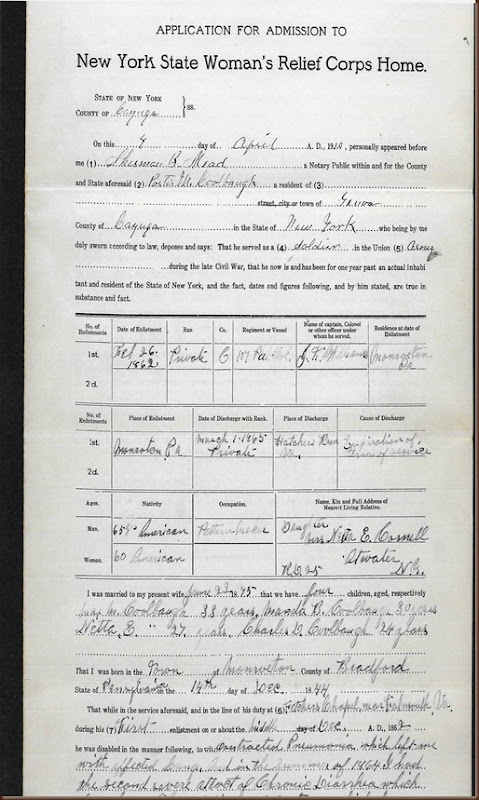 APPLICATION FOR ADMISSION TO
New York State Woman's Relief Corps Home.
STATE OF NEW YORK
COUNTY OF Cayuga } ss.
On this 9 day of April A. D., 1910, personally appeared before
me (1) Sherman B. Mead a Notary Public within and for the County
and State aforesaid (2) Porter M. Coolbaugh a resident of (3)
street, city or town of Genoa
County of Cayuga in the State of New York who being by me
duly sworn according to law, deposes and says: That he served as a (4) Soldier in the Union (5) Army
during the late Civil War, that he now is and has been for one year past an actual inhabi
tant and resident of the State of New York, and the fact, dates and figures following, and by him stated, are true in
substance and fact.
No. of Enlistments Date of Enlistment Rank Co. Regiment or Vessel Name of captain, Colonel or other officer under whom he served. Residence at date of Enlistment
1st. Feb 26. 1862 Private C 107 Pa Vol. Monroeton Pa
2d.
No. of Enlistments Place of Enlistment Date of Discharge with Rank. Place of Discharge Cause of Discharge
1st. Monroeton Pa March 1-1865 Private Hatchers Run Va. Expiration of Term of service
2d.
Ages. Nativity Occupation. Name, Kin and Full Address of Nearest Living Relative.
Man. 65 American Pattern maker Daughter Mrs Netta E. Cornell
Woman. 60 American Atwater
R.D. 25 N.Y.
I was married to my present wife June 22 1875 that we have four children, aged, respectively
M. Coolbaugh 33 years, B. Coolbaugh 30 years
Netta E. " 27 years Charles D. Coolbaugh 24 years
That I was born in the Town of Monroeton County of Bradford
State of on the 14th day of Dec. 1844
That while in the service aforesaid, and in the line of his duty at (6) Fletchers Chapel, near Falmouth Va.
during his (7) First enlistment on or about the day of Dec. A. D. 1862
he was disabled in the manner following, to wit: Contracted Pneumonia which left me
with affected lungs. And in the summer of 1864 I had
the second severe attack of Chronic Diarrhea which